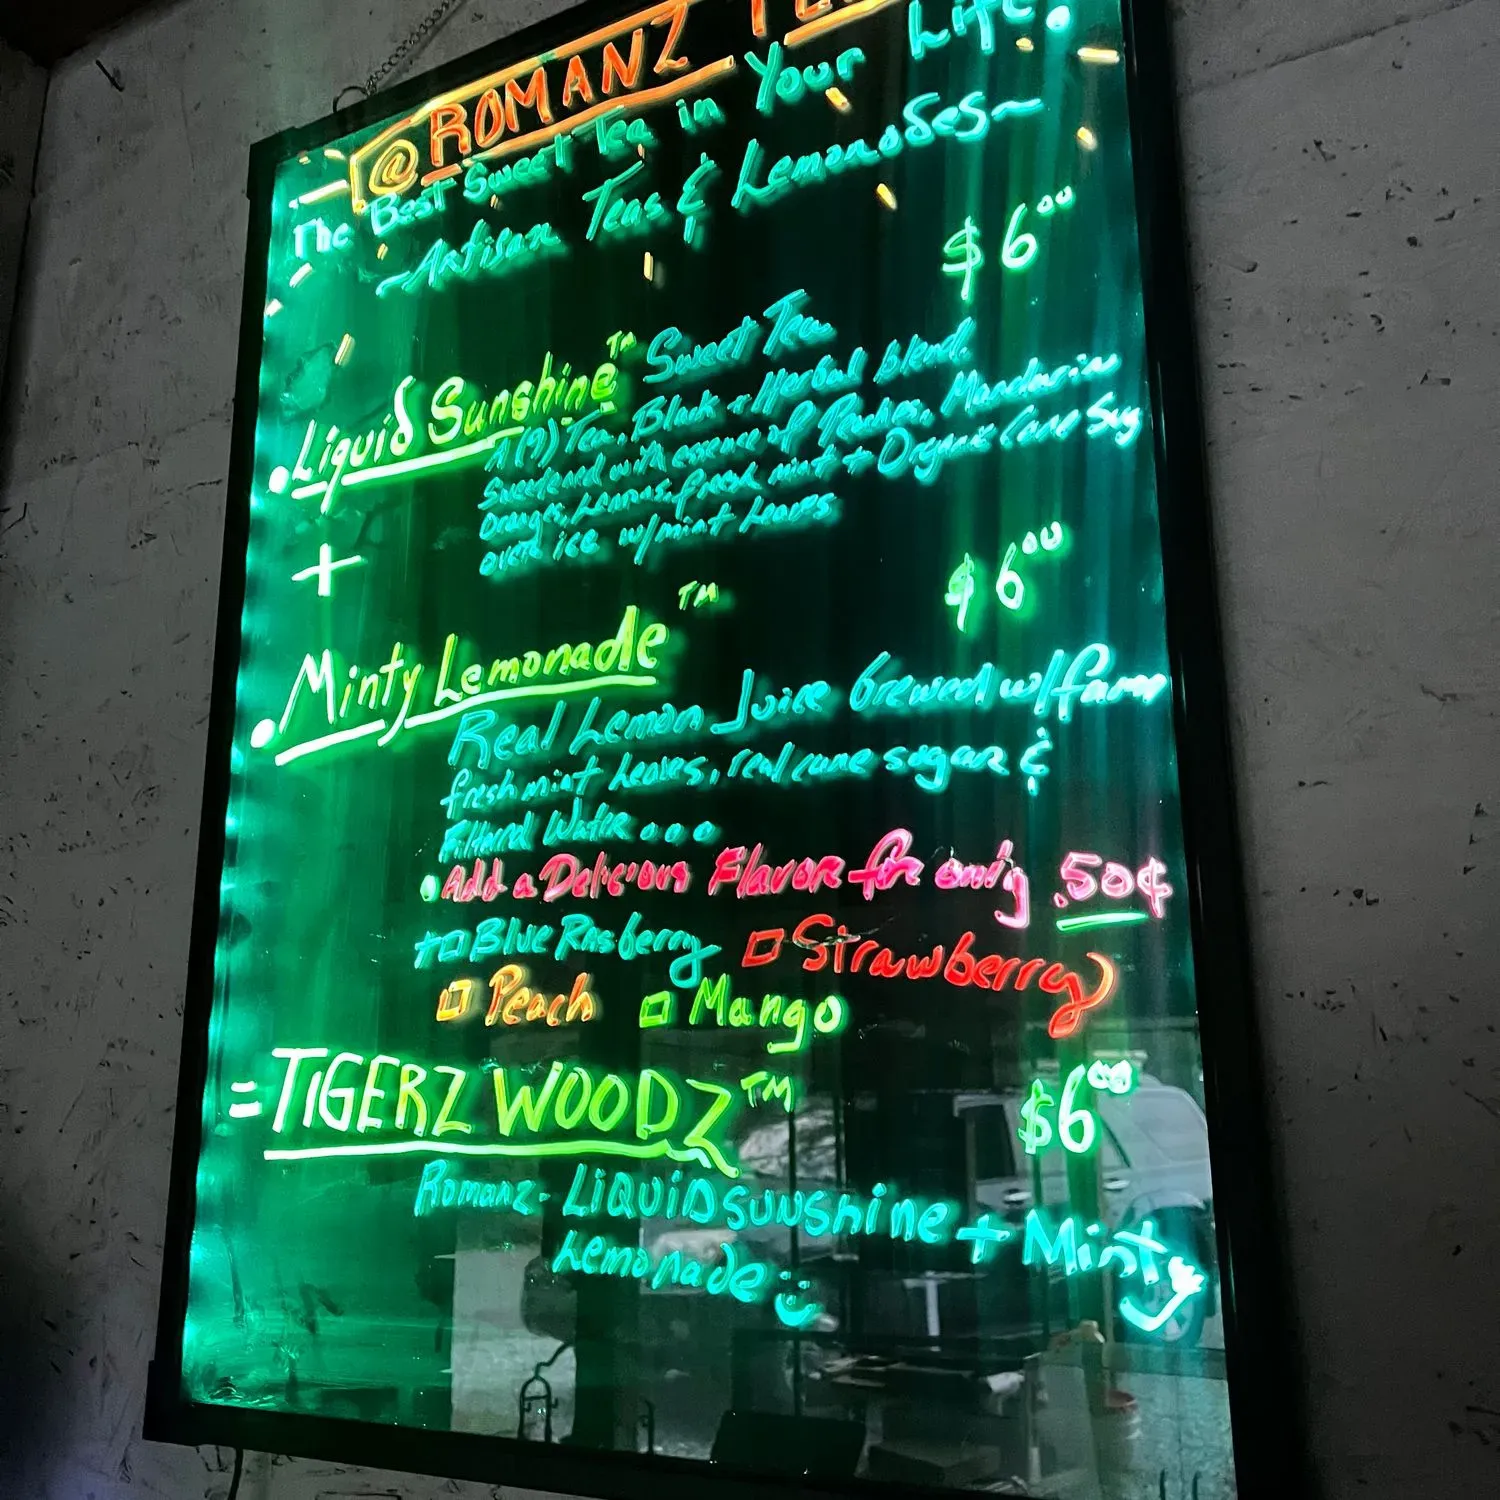 @ROMANZ
The Best Sweet Tea in Your Life.
~Artisan Teas & Lemonades~
$6.00
• Liquid Sunshine™ Sweet Tea
A (9) Tea, Black + Herbal blend.
Sweetened with essence of Mandarin
Oranges, Lemons, fresh mint + Organic Cane Sug
over ice w/mint Leaves
+
$6.00
• Minty Lemonade™
Real Lemon Juice brewed w/farm
fresh mint Leaves, real cane sugar &
Filtered Water...
• Add a Delicious Flavor for only .50¢
+ Blue Rasberry Strawberry
Peach Mango
=TIGERZ WOODZ™ $6.00
Romanz - LiQUiD SUNShine + Minty
Lemonade